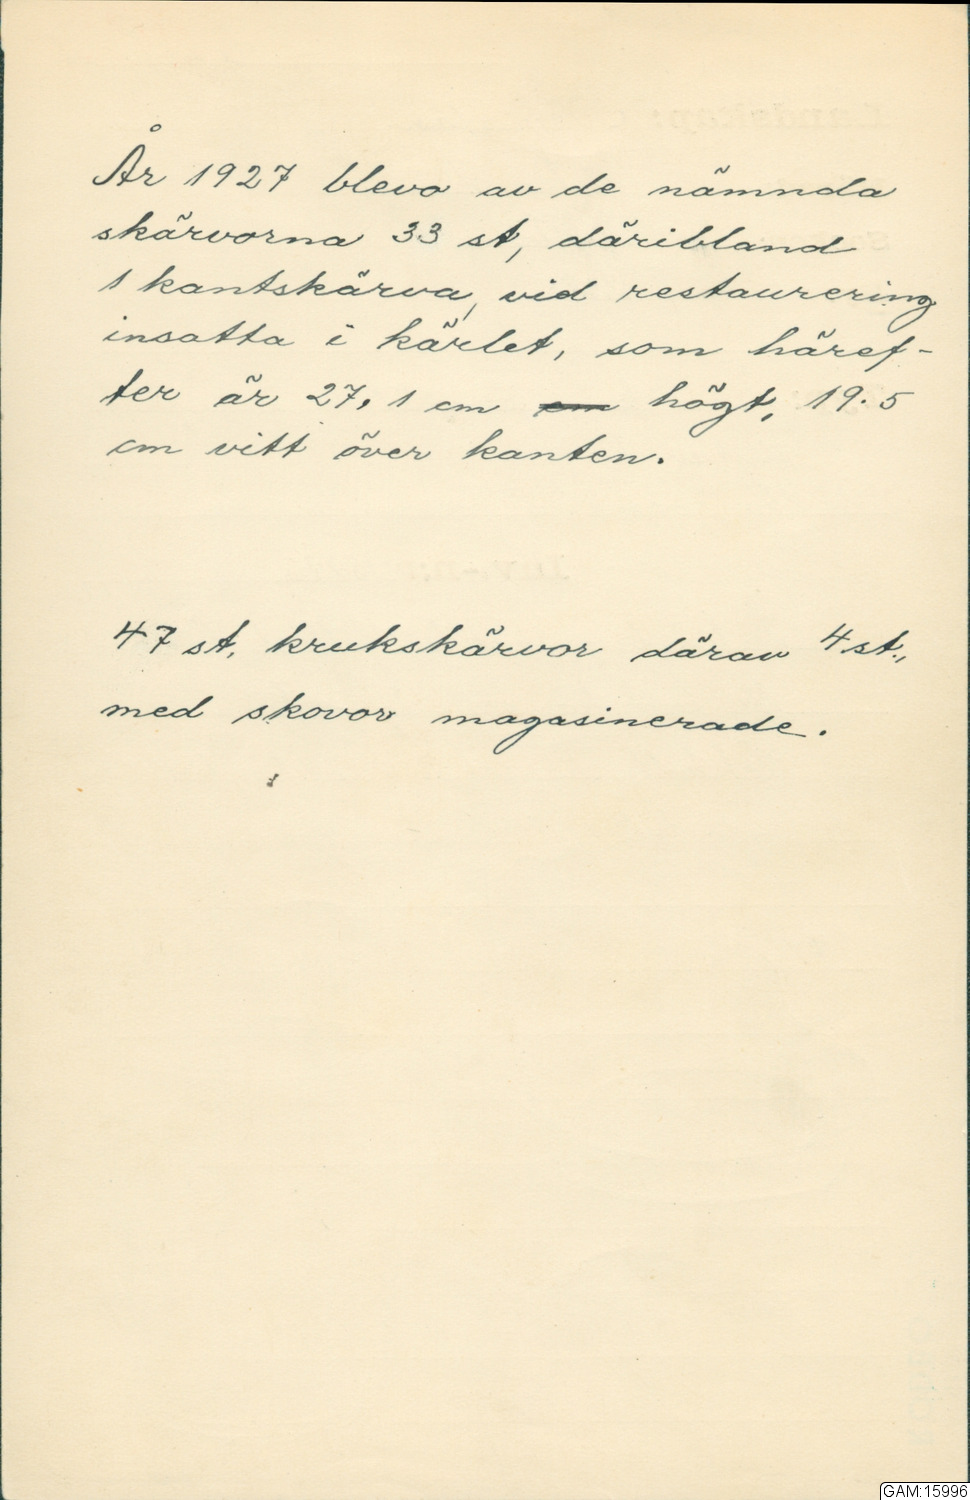 År 1927 blevo av de nämnda
skärvorna 33 st, däribland
1 kantskärva, vid restaurering
insatta i kärlet, som häref-
ter är 27,1 cm cm högt, 19.5
cm vitt över kanten.
47 st. krukskärvor därav 4 st.,
med skovor magasinerade.
GAM:15996